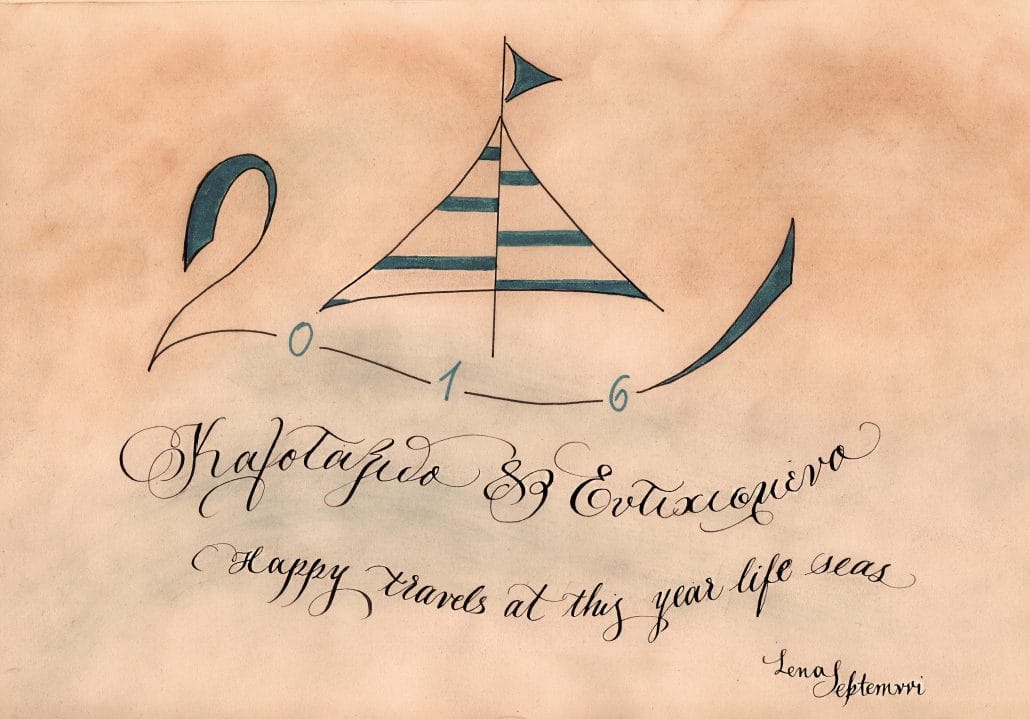 2016
Καλοτάξιδο & Ευτιχισμένο
Happy travels at this year life seas
Lena Septemvri